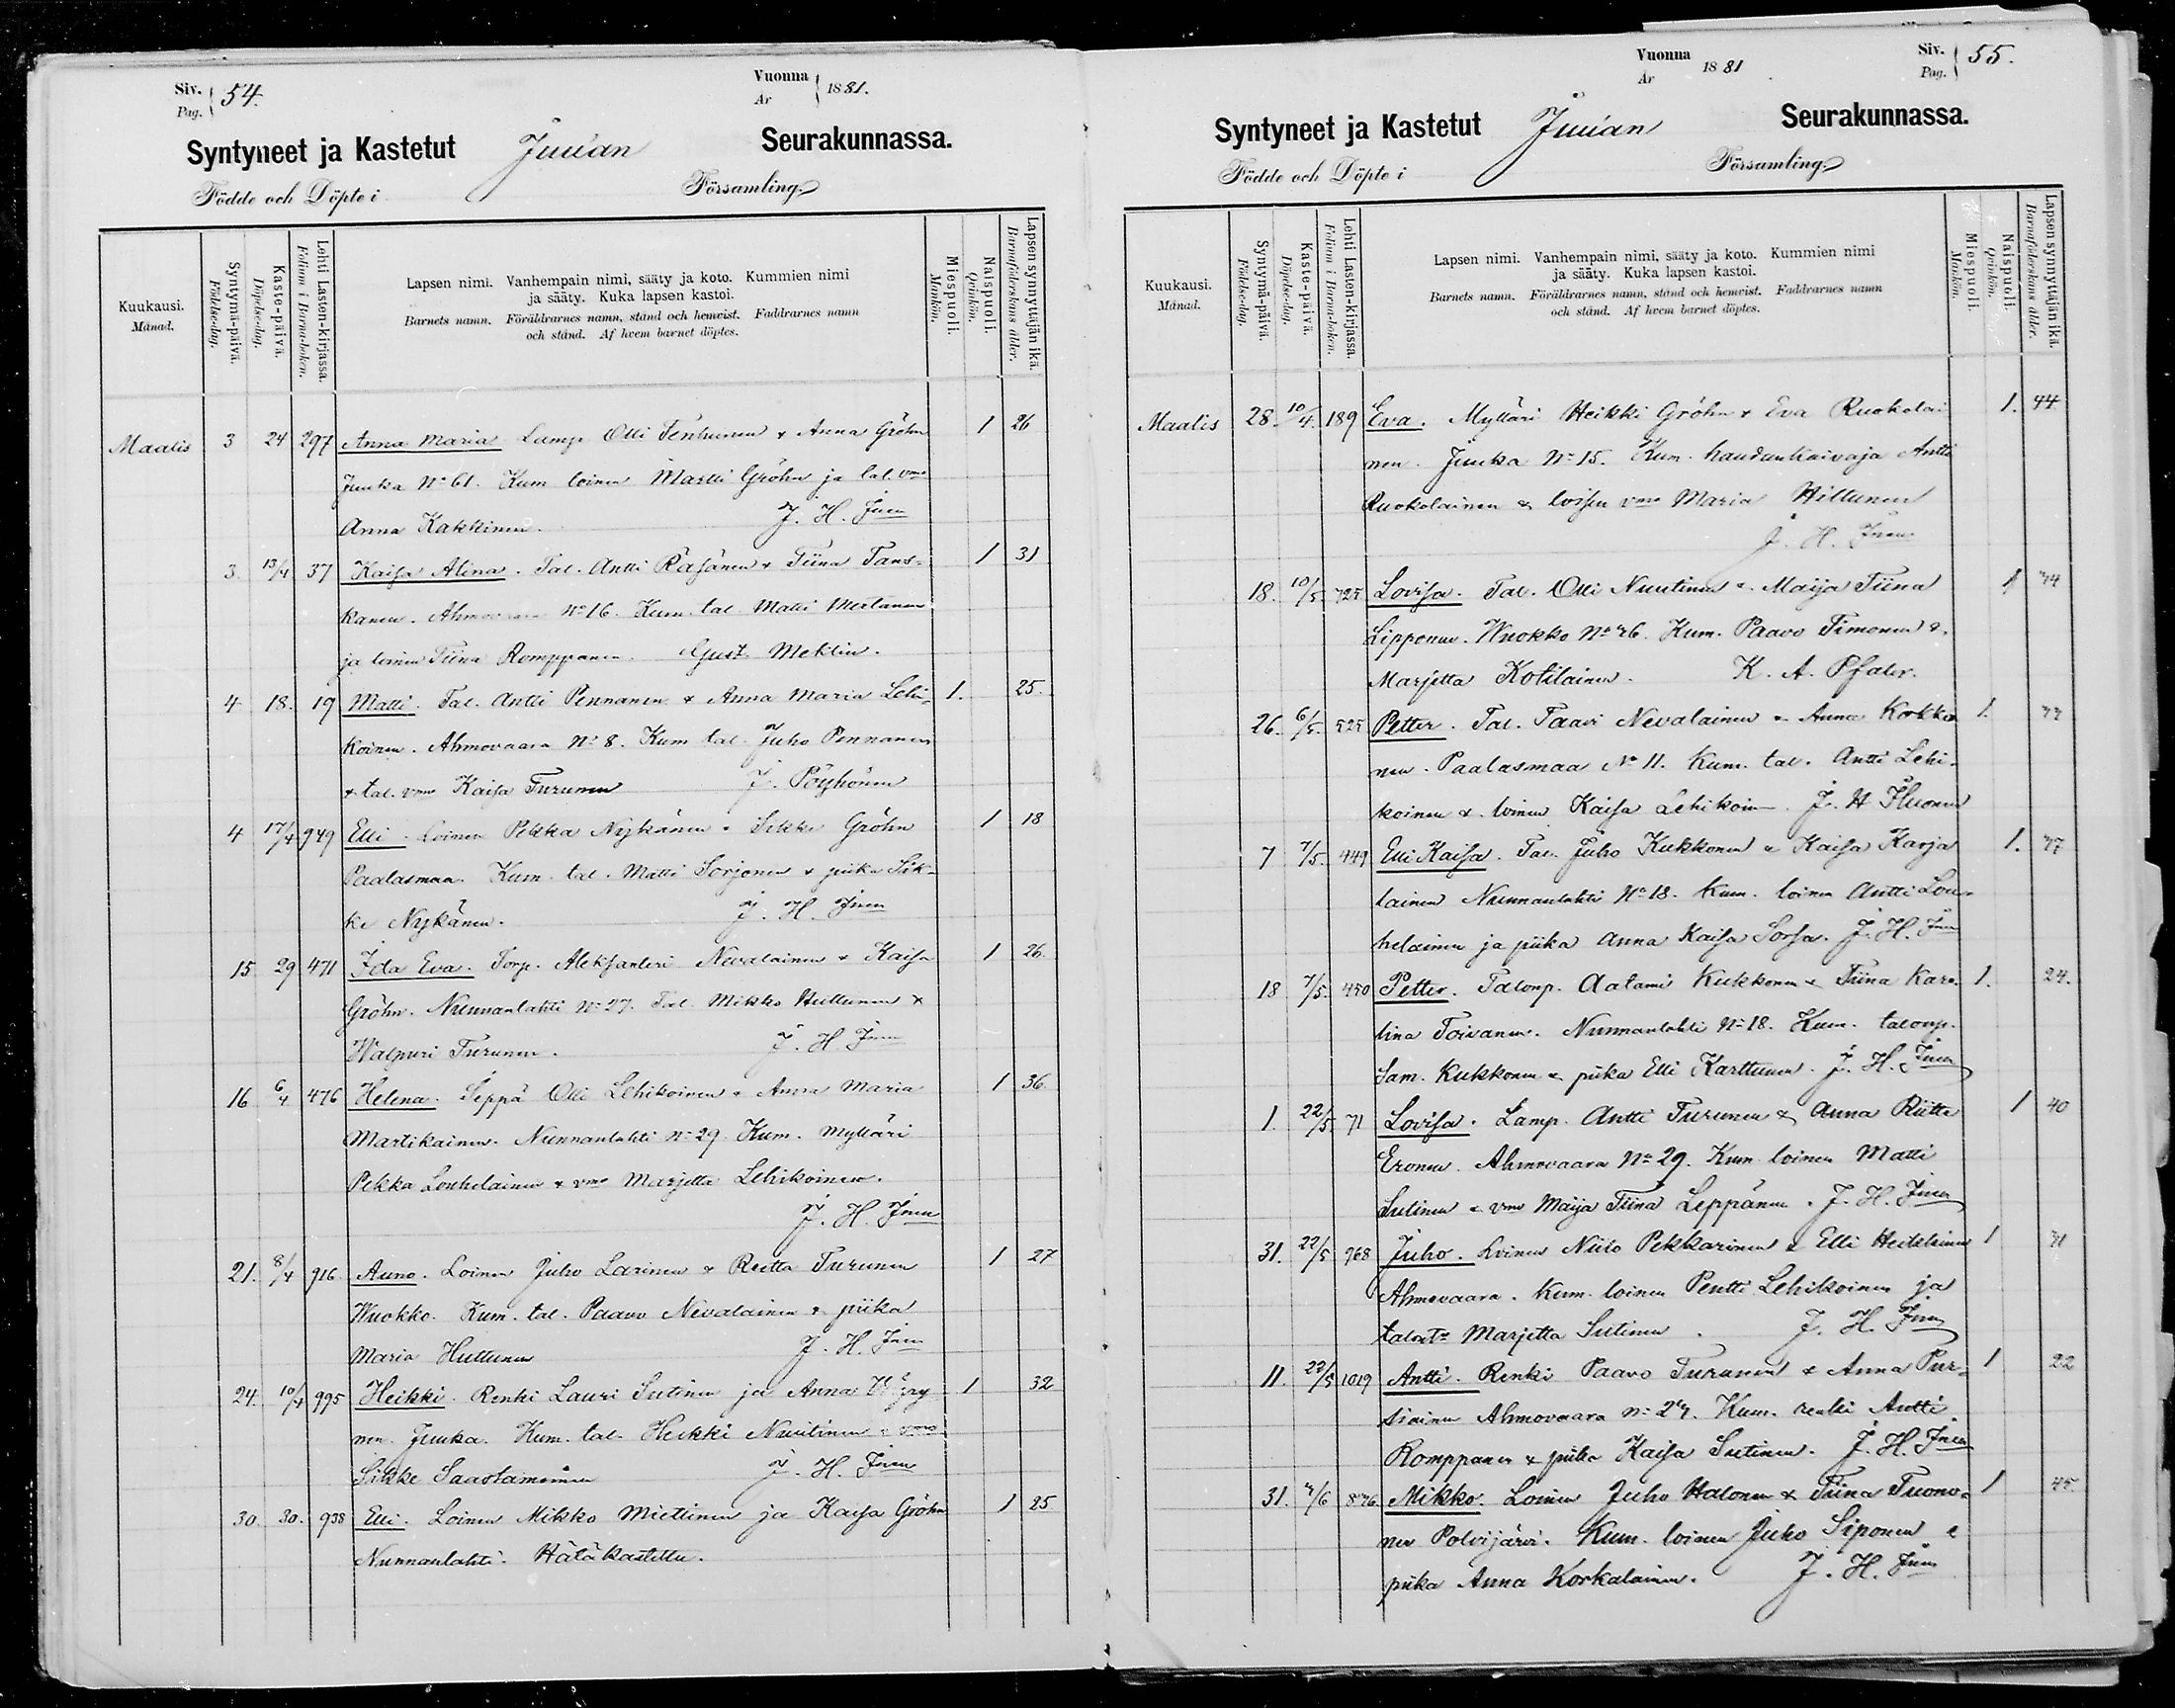 Siv. Pag. 54.
Vuonna År 1881.
Syntyneet ja Kastetut Juuan Seurakunnassa.
Födde och Döpte i Församling.
Kuukausi. Månad.
Syntymä-päivä. Födelse-dag.
Kaste-päivä. Döpelse-dag.
Lehti Lasten-kirjassa. Folium i Barna-boken.
Lapsen nimi. Vanhempain nimi, sääty ja koto. Kummien nimi
ja sääty. Kuka lapsen kastoi.
Barnets namn. Föräldrarnes namn, stånd och hemvist. Faddrarnes namn
och stånd. Af hvem barnet döptes.
Miespuoli. Mankön.
Naispuoli. Qvinkön.
Lapsen synnyttäjän ikä. Barnaföderskans ålder.
Maalis 3 24 297 Anna Maria Lamp Olli Tenhunen & Anna Gröhn 1 26
Juuka No 61. Kum loinen Martti Gröhn ja tal. vmo
Anna Kakkinen. J. H. Jnen
3. 13/4 37 Kaisa Alina. Tal. Antti Räsänen & Tiina Tans-
kanen. Ahmovaara No 16. Kum. tal. Matti Mertanen
ja loinen Tiina Romppanen. Gust. Meklin.
4 18. 19 Matti. Tal. Antti Pennanen & Anna Maria Lehi- 1. 25.
koinen. Ahmovaara No 8. Kum tal. Juho Pennanen
& tal. vmo Kaisa Turunen J. Pöyhönen
4 17/4 949 Elli. Loinen Pekka Nykänen & Sikke Gröhn 1 18
Paalasmaa. Kum. tal. Matti Sorjonen & piika Sik-
ke Nykänen. J. H. Jnen
15 29 471 Ida Eva. Torp. Aleksanteri Nevalainen & Kaisa 1 26.
Gröhn. Nunnanlahti No 27. Tal. Mikko Huttunen &
Walpuri Turunen. J. H. Jnen
16 6/4 476 Helena. Seppä Olli Lehikoinen & Anna Maria 1 36.
Martikainen. Nunnanlahti No 29. Kum. Mylläri
Pekka Louhelainen & vmo Marjetta Lehikoinen.
J. H. Jnen
21. 8/4 916. Auno. Loinen Juho Larinen & Reetta Turunen 1 27
Wuokko. Kum. tal. Paavo Nevalainen & piika
Maria Huttunen J. H. Jnen
24. 10/4 995 Heikki. Renki Lauri Sutinen ja Anna 1 32
nen. Juuka. Kum. tal. Heikki Nuutinen & vmo
Sikke Saastamoinen J. H. Jnen
30. 30. 938 Elli. Loinen Mikko Miettinen ja Kaisa Gröhn 1 25
Nunnanlahti. Hätäkastettu.
Vuonna År 1881
Siv. Pag. 55.
Syntyneet ja Kastetut Juuan Seurakunnassa.
Födde och Döpte i Församling.
Kuukausi. Månad.
Syntymä-päivä. Födelse-dag.
Kaste-päivä. Döpelse-dag.
Lehti Lasten-kirjassa. Folium i Barna-boken.
Lapsen nimi. Vanhempain nimi, sääty ja koto. Kummien nimi
ja sääty. Kuka lapsen kastoi.
Barnets namn. Föräldrarnes namn, stånd och hemvist. Faddrarnes namn
och stånd. Af hvem barnet döptes.
Miespuoli. Mankön.
Naispuoli. Qvinkön.
Lapsen synnyttäjän ikä. Barnaföderskans ålder.
Maalis 28. 10/4. 189 Eva. Mylläri Heikki Gröhn & Eva Ruokolai 1. 44
nen. Juuka No 15. Kum. haudankaivaja Antti
Ruokolainen & loisen vmo Maria Hiltunen
J. H. Jnen
18. 10/5 725 Lovisa. Tal. Olli Nuutinen & Maija Tiina 1 44
Lipponen. Wuokko No 46. Kum. Paavo Timonen &
Marjetta Kotilainen. K. A. Pfaler.
26. 6/5. 525 Petter. Tal. Taavi Nevalainen & Anna Korkko 1.
nen. Paalasmaa No 11. Kum. tal. Antti Lehi-
koinen & loinen Kaisa Lehikoin J. H. Jluonen
7 7/5. 449 Elli Kaisa. Tal. Juho Kukkonen & Kaisa Karja 1. 47
lainen Nunnanlahti No 18. Kum. loinen Antti Lou-
helainen ja piika Anna Kaisa Sorsa. J. H. Jnen
18 7/5. 450 Petter. Talonp. Aatami Kukkonen & Tiina Karo- 1. 24.
lina Toivanen. Nunnanlahti No 18. Kum. talonp.
Sam. Kukkonen & piika Elli Karttunen. J. H. Jnen
1. 22/5. 71 Lovisa. Lamp. Antti Turunen & Anna Riitta 1 40
Eronen. Ahmovaara No 29. Kum loinen Matti
Sutinen & vmo Maija Tiina Leppänen. J. H. Jnen
31. 22/5 968 Juho. Loinen Niilo Pekkarinen & Elli Heikkinen 1 41
Ahmovaara. Kum. loinen Pentti Lehikoinen ja
Marjetta Sutinen. J. H. Jnen
11. 22/5 1019 Antti. Renki Paavo Turunen & Anna Pur- 1 22
siainen Ahmovaara No 24. Kum. renki Antti
Romppanen & piika Kaisa Sutinen. J. H. Jnen
31. 4/6 846. Mikko. Loinen Juho Halonen & Tiina Tuono- 1 45
nen Polvijärvi. Kum. loinen Juho Siponen &
piika Anna Korkalainen. J. H. Jnen